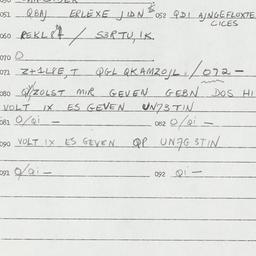 051 QBAJ ERLEXE JIDN 053 QDI AJNGEFLOXTE
CICES
060 / S3RTU, IK
070 O
071 Z+1LPE, T QGL QKAMZOJL : / 072 -
080 Q/ZOLST MIR GEVEN GEBN DOS HI
VOLT IX ES GEVEN UN73TIN
081 O/Qi - 082 O/Qi -
090 VOLT IX ES GEVEN QP UN7G3TIN
091 O/Qi - 092 Qi -